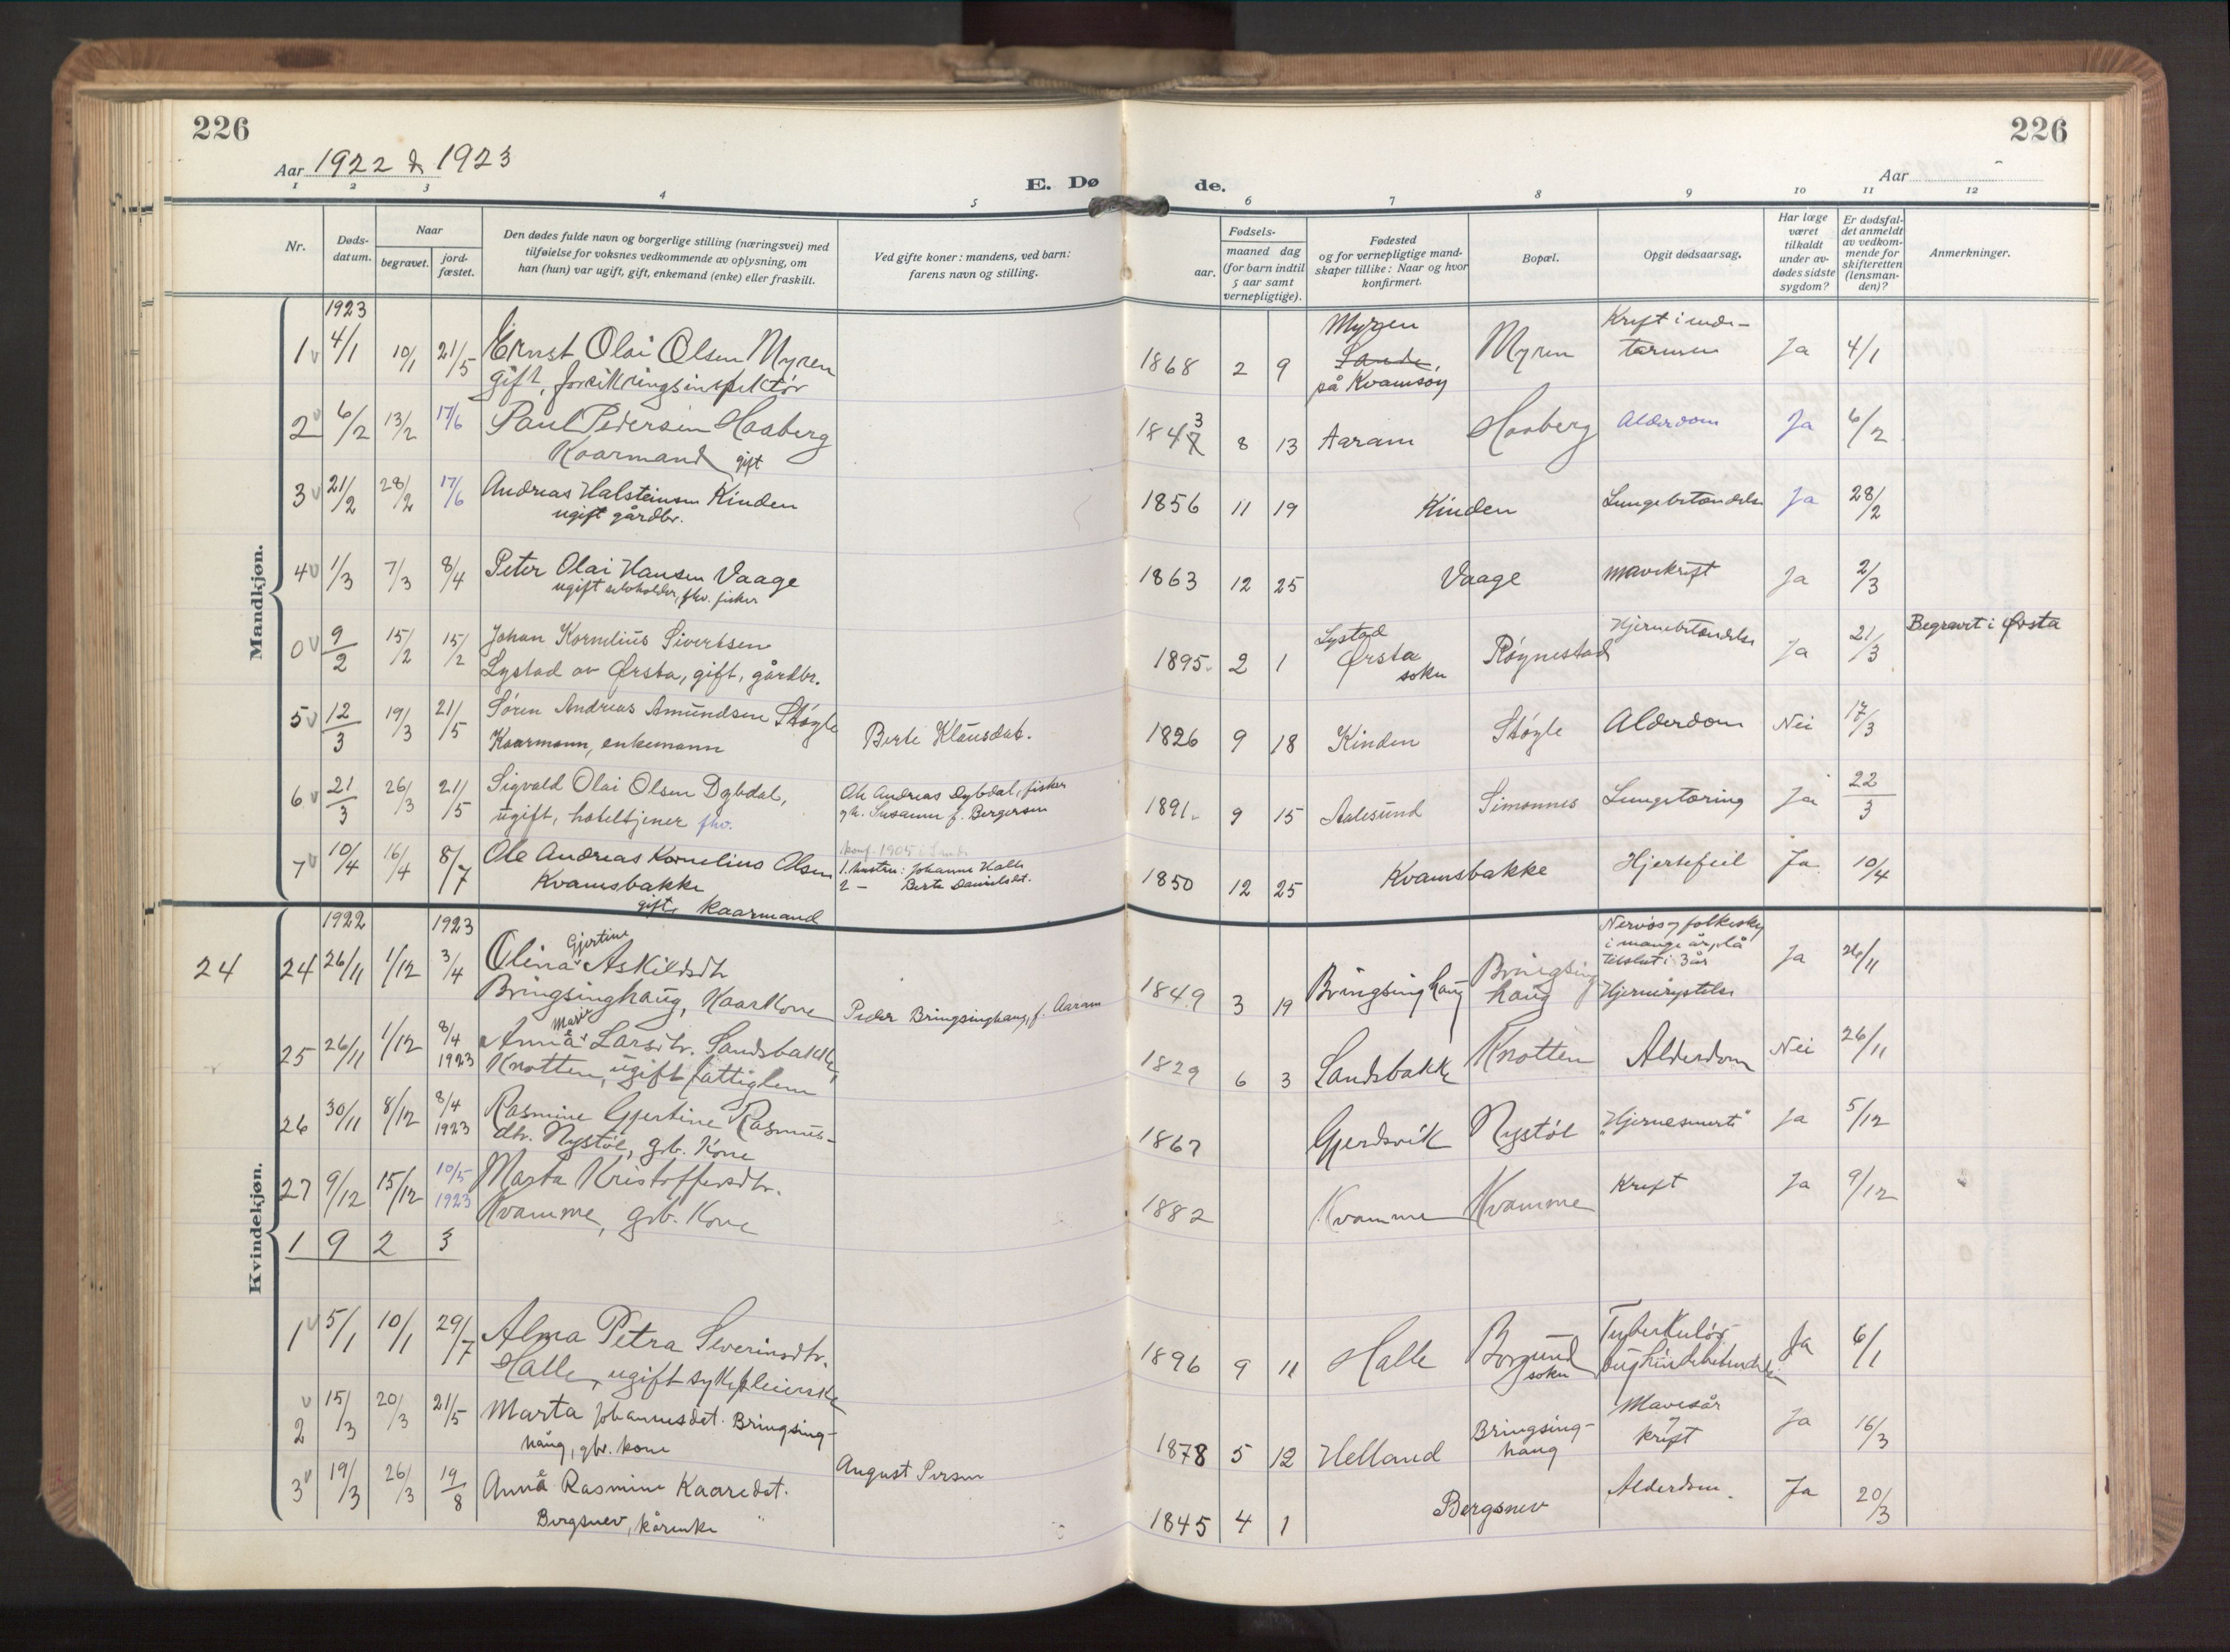 226
226
Aar 1922 & 1923
E. Dø
de.
Aar
1 2 3 4 5 6 7 8 9 10 11 12
Nr.
Døds-
datum.
Naar
begravet.
jord-
fæstet.
Den dødes fulde navn og borgerlige stilling (næringsvei) med
tilføielse for voksnes vedkommende av oplysning, om
han (hun) var ugift, gift, enkemand (enke) eller fraskilt.
Ved gifte koner: mandens, ved barn:
farens navn og stilling.
Fødsels-
aar.
maaned dag
(for barn indtil
5 aar samt
vernepligtige).
Fødested
og for vernepligtige mand-
skaper tillike: Naar og hvor
konfirmert.
Bopæl.
Opgit dødsaarsag.
Har læge
været
tilkaldt
under av-
dødes sidste
sygdom?
Er dødsfal-
det anmeldt
av vedkom-
mende for
skifteretten
(lensman-
den)?
Anmerkninger.
Mandkjøn.
1923
1 4/1 10/1 21/5 Ernst Olai Olsen Myren
gift, forsikringsinspektör
1868 2 9 Myren
Sande,
på Kvamsöy
Myren
Kreft i ende-
tarmen
Ja 4/1
2 6/2 13/2 17/6 Paul Pedersen Haaberg
Kaarmand gift
1847 3 8 13 Aaram Haaberg Alderdom Ja 6/2
3 21/2 28/2 17/6 Andreas Halsteinsen Kinden
ugift gårdbr.
1856 11 19 Kinden Lungebetændelse Ja 28/2
4 1/3 7/3 8/4 Peter Olai Hansen Vaage
ugift selvholder, fhv. fisker
1863 12 25 Vaage mavekreft Ja 2/3
0 9/2 15/2 15/2 Johan Kornelius Sivertsen
Lystad av Ørsta, gift, gårdbr.
1895 2 1 Lystad
Ørsta
sokn
Röynestad Hjernebetændelse Ja 21/3 Begravet i Ørsta
5 12/3 19/3 21/5 Sören Andreas Amundsen Stöyle
Kaarmann, enkemann
Berte Klausdat.
1826 9 18 Kinden Stöyle Alderdom Nei 17/3
6 21/3 26/3 21/5 Sigvald Olai Olsen Dybdal,
ugift, hoteltjener fhv.
Ole Andreas Dybdal, fisker
og h. Susanne f. Bergersen
konf. 1905 i Sande
1891 9 15 Aalesund Simonnes Lungetæring Ja 22/3
7 10/4 16/4 8/7 Ole Andreas Kornelius Olsen
Kvamsbakke
gift kaarmand
1. hustru: Johanne Halle
2 – Berte Danielsdt.
1850 12 25 Kvamsbakke Hjertefeil Ja 10/4
Kvindekjøn.
1922 1923
24 24 26/11 1/12 3/4 Olina Gjertine Askildsdtr
Bringsinghaug, Kaarkone
Peder Bringsinghaug, f. Aaram
1849 3 19 Bringsinghaug Bringsing
haug
Nervös og folkesky
i mange år, lå
tilslut i 3 år
Hjernerystelse
Ja 26/11
25 26/11 1/12 8/4
1923
Anna Marie Larsdtr. Sandsbakke,
Knotten, ugift fattiglem
1829 6 3 Sandsbakke Knotten Alderdom Nei 26/11
26 30/11 8/12 8/4
1923
Rasmine Gjertine Rasmus-
dtr. Nystöl, grb. kone
1867 Gjerdsvik Nystöl "Hjernesmerte" Ja 5/12
27 9/12 15/12 10/5
1923
Marta Kristoffersdtr.
Kvamme, grb. Kone
1882 Kvamme Kvamme Kreft Ja 9/12
1 9 2 3
1 5/1 10/1 29/7 Alma Petra Severinsdtr.
Halle, ugift sykepleierske
1896 9 11 Halle Borgund
sokn
Tuberkulös
bughindebetændelse
Ja 6/1
2 15/3 20/3 21/5 Marta Johannesdat. Bringsing-
haug, gbr. kone
1878 5 12 Helland Bringsing-
haug
Mavesår
og
kreft
Ja 16/3
3 19/3 26/3 19/8 Anna Rasmine Kaaredat.
Bergsnev, kårenke
August Person
1845 4 1 Bergsnev Alderdom. Ja 20/3